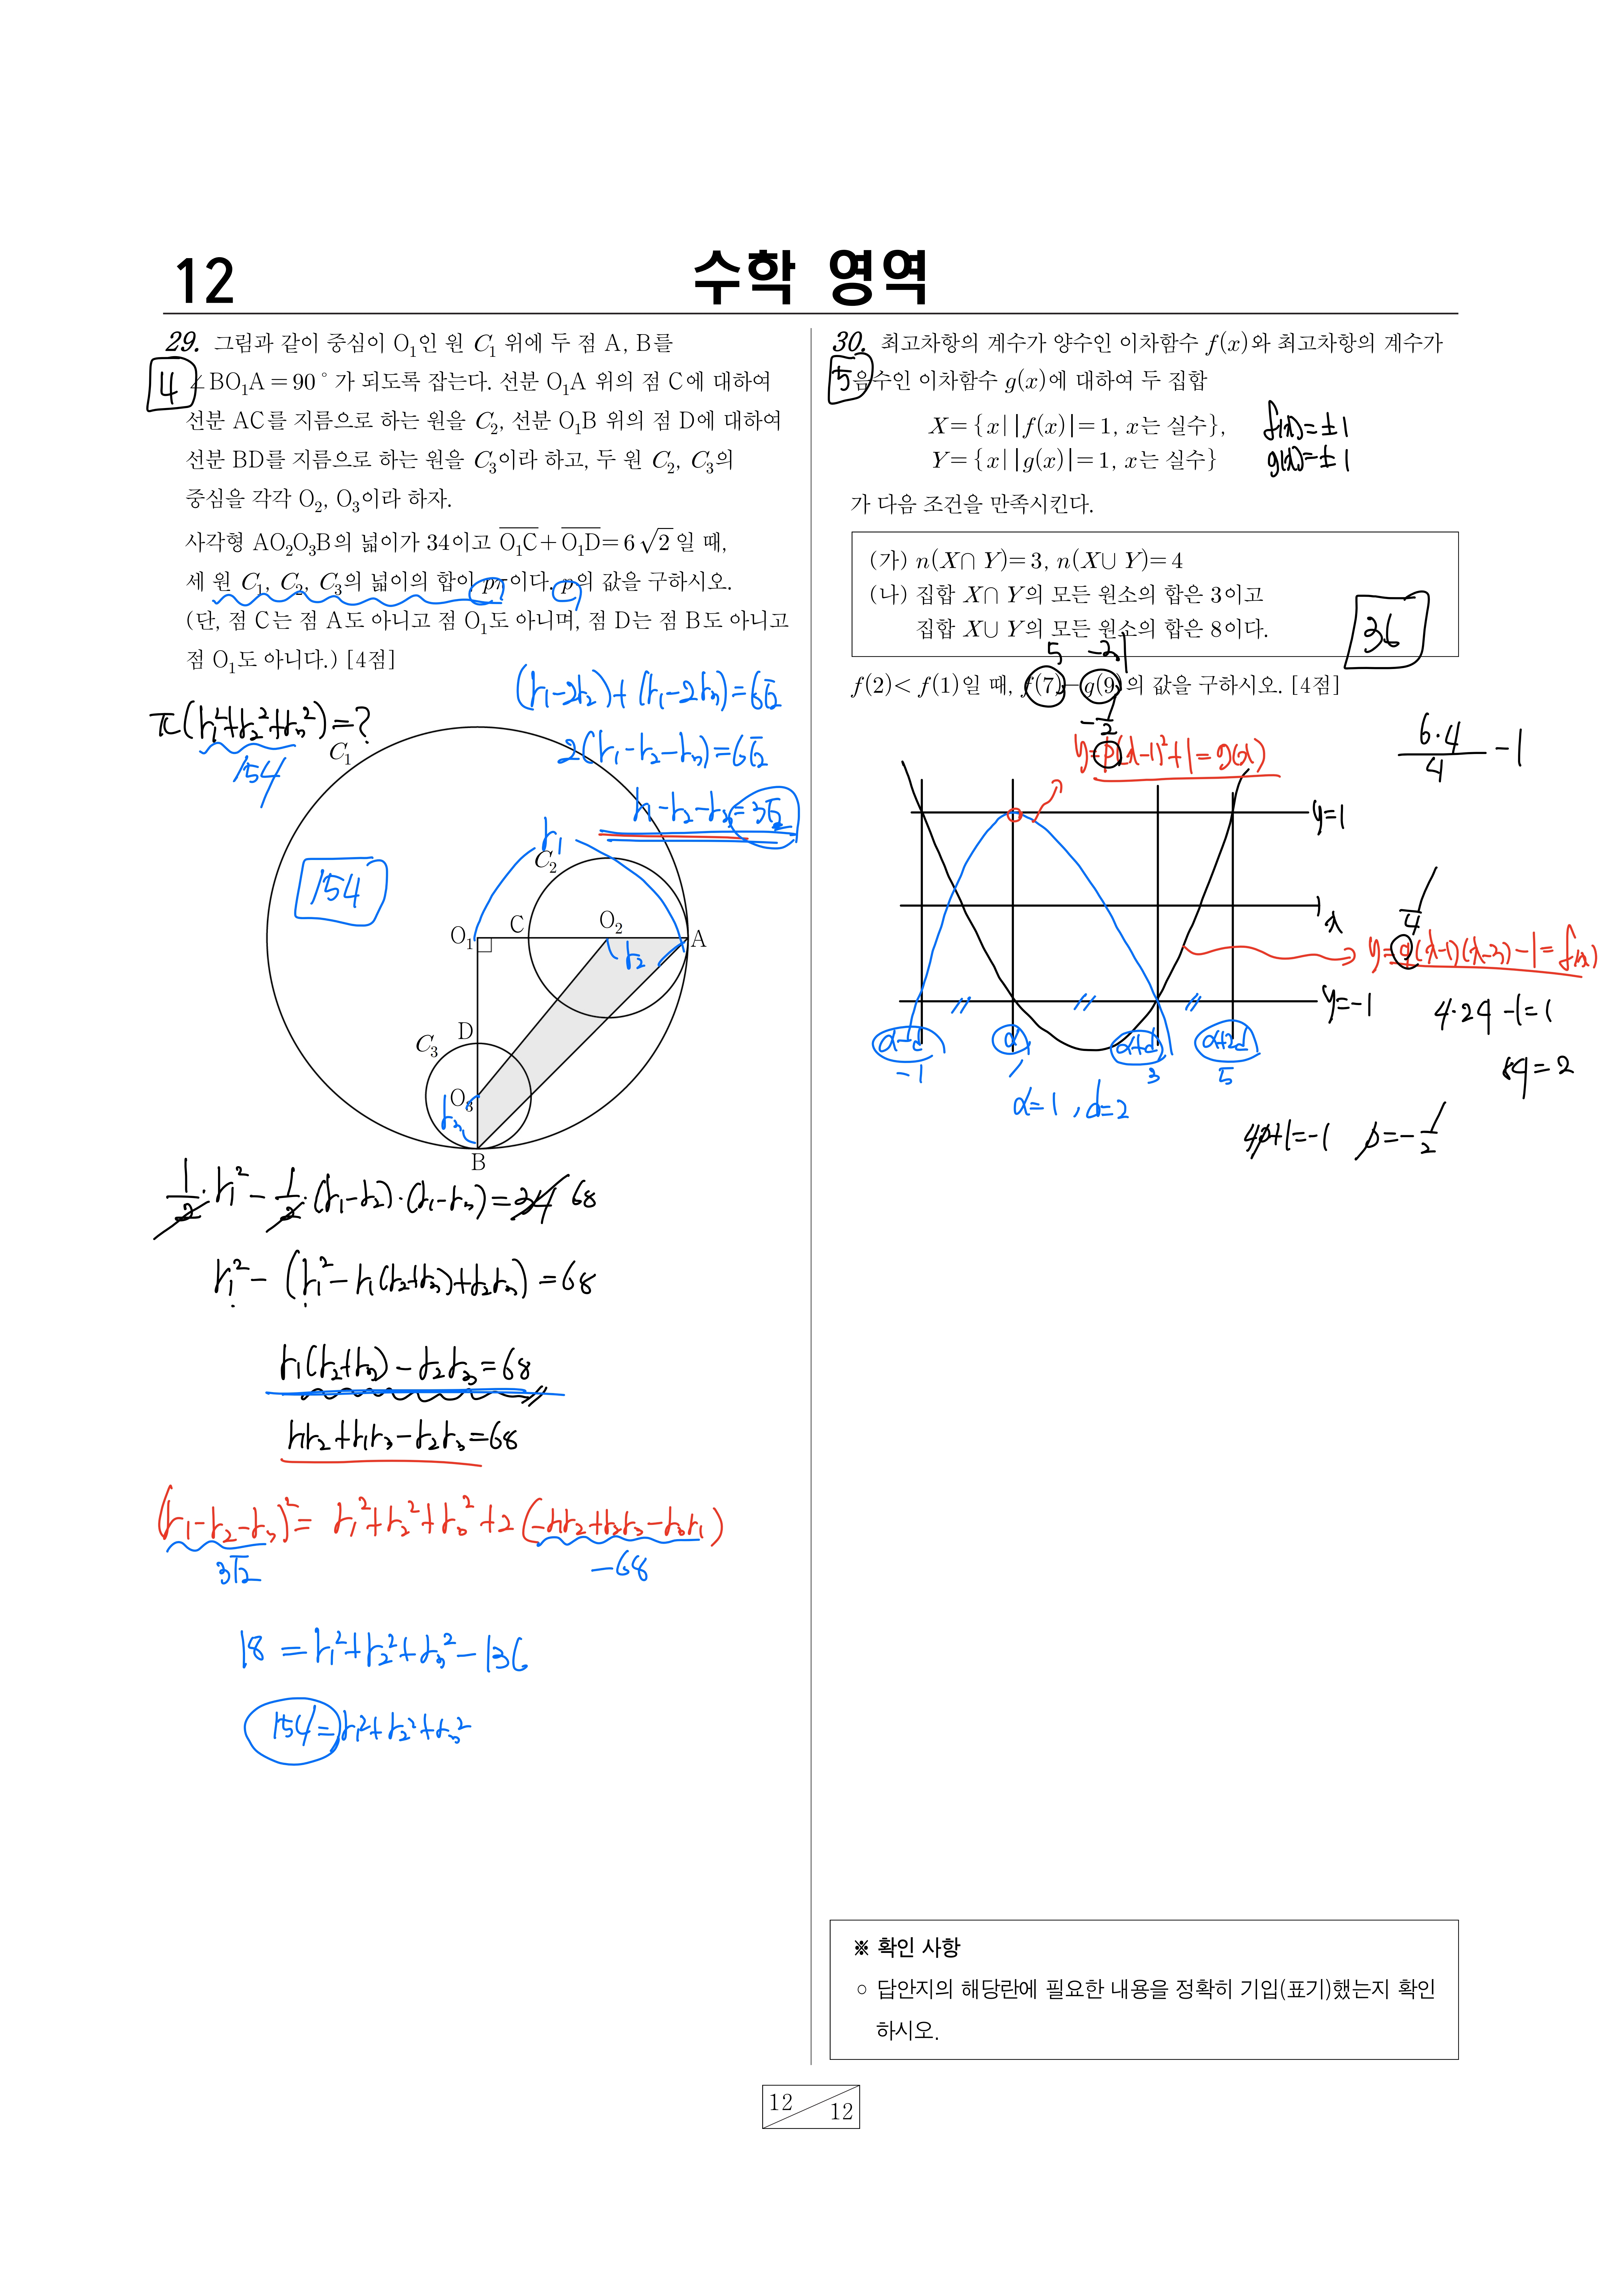 12
수학 영역
29. 그림과 같이 중심이 O₁인 원 C₁ 위에 두 점 A, B를
4
∠BO₁A = 90°가 되도록 잡는다. 선분 O₁A 위의 점 C에 대하여
선분 AC를 지름으로 하는 원을 C₂, 선분 O₁B 위의 점 D에 대하여
선분 BD를 지름으로 하는 원을 C₃이라 하고, 두 원 C₂, C₃의
중심을 각각 O₂, O₃이라 하자.
사각형 AO₂O₃B의 넓이가 34이고 O₁C + O₁D = 6√2 일 때,
세 원 C₁, C₂, C₃의 넓이의 합이 pπ이다. p의 값을 구하시오.
(단, 점 C는 점 A도 아니고 점 O₁도 아니며, 점 D는 점 B도 아니고
점 O₁도 아니다.) [4점]
(r₁-2r₂)+(r₁-2r₃)=6√2
π(r₁²+r₂²+r₃²)=?
154
2(r₁-r₂-r₃)=6√2
r₁-r₂-r₃=3√2
C₁
r₁
C₂
154
O₁ C O₂ A
r₂
D
C₃
O₃
r₃
B
1/2·r₁² - 1/2·(r₁-r₂)·(r₁-r₃)=34 68
r₁² - (r₁² - r₁(r₂+r₃)+r₂r₃) = 68
r₁(r₂+r₃) - r₂r₃ = 68
r₁r₂+r₁r₃-r₂r₃=68
(r₁-r₂-r₃)² = r₁²+r₂²+r₃²+2(-r₁r₂+r₂r₃-r₃r₁)
3√2 -68
18 = r₁²+r₂²+r₃²-136
154=r₁²+r₂²+r₃²
30. 최고차항의 계수가 양수인 이차함수 f(x)와 최고차항의 계수가
5
음수인 이차함수 g(x)에 대하여 두 집합
X = {x | |f(x)| = 1, x는 실수}, f(x)=±1
Y = {x | |g(x)| = 1, x는 실수} g(x)=±1
가 다음 조건을 만족시킨다.
(가) n(X∩Y)=3, n(X∪Y)=4
(나) 집합 X∩Y의 모든 원소의 합은 3이고
집합 X∪Y의 모든 원소의 합은 8이다.
36
5 -31
f(2) < f(1)일 때, f(7)-g(9)의 값을 구하시오. [4점]
-1/2
y=p(x-1)²+1=g(x)
6·4/4 - 1
y=1
x
1/4
y=q(x-1)(x-3)-1=f(x)
y=-1
4·2q-1=1
8q=2
α-d α α+d α+2d
-1 1 3 5
α=1, d=2
4p+1=-1 p=-1/2
※ 확인 사항
○ 답안지의 해당란에 필요한 내용을 정확히 기입(표기)했는지 확인
하시오.
12
12